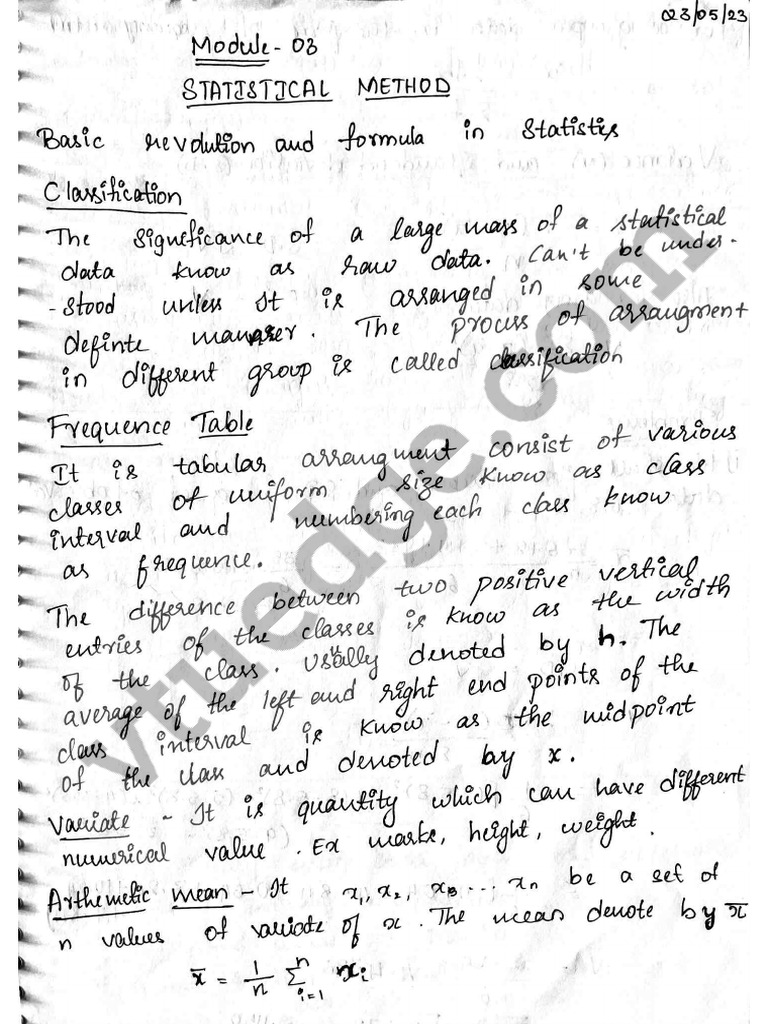 023/05/23
Module - 03
STATISTICAL METHOD
Basic revolution and formula in Statistics
Classification
The Significance of a large mass of a statistical
data know as raw data. Can't be under-
-stood unless It is arranged in some
definte manner. The process of arrangment
in different group is called classification
Frequence Table
It is tabular arrangment consist of various
classes of uniform size know as class
interval and numbering each class know
as frequence.
The difference between two positive vertical
entries of the classes is know as the width
of the class. Usually denoted by h. The
average of the left and right end points of the
class interval is know as the midpoint
of the class and denoted by x.
Variate - It is quantity which can have different
numerical value. Ex marks, height, weight.
Arthemetic mean - It x₁, x₂, x₃ ... xₙ be a set of
n values of variate of x. The mean denote by x̄
x̄ = 1/n Σⁿᵢ₌₁ xᵢ
vtuedge.com